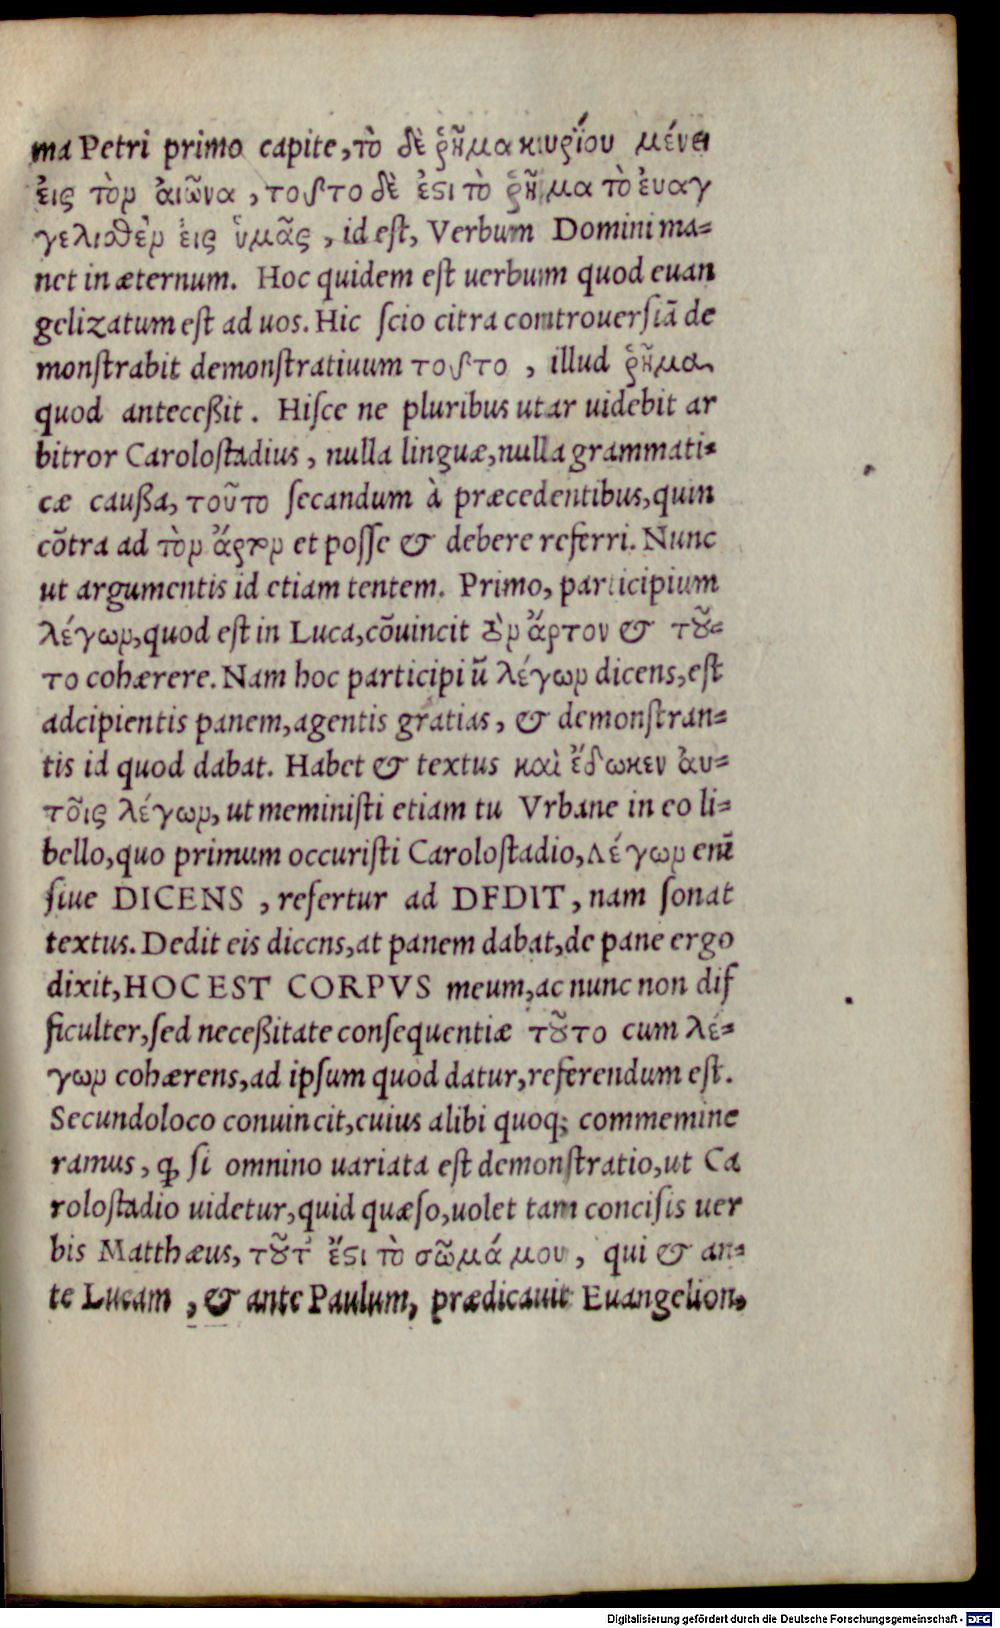 ma Petri primo capite, τὸ δὲ ῥῆμα κυρίου μένει
ἐις τὸν ἀιῶνα, τοῦτο δὲ ἐϛι τὸ ῥῆμα τὸ ἐυαγ
γελισθὲν ἐις ὑμᾶς, id eſt, Verbum Domini ma=
net in æternum. Hoc quidem eſt uerbum quod euan
gelizatum eſt ad uos. Hic ſcio citra controuerſiã de
monſtrabit demonſtratiuum τοῦτο, illud ῥῆμα
quod anteceßit. Hiſce ne pluribus utar uidebit ar
bitror Caroloſtadius, nulla linguæ, nulla grammati=
cæ cauſſa, τοῦτο ſecandum à præcedentibus, quin
cõtra ad τὸν ἄρτον et poſſe & debere referri. Nunc
ut argumentis id etiam tentem. Primo, participium
λέγων, quod eſt in Luca, cõuincit τὸν ἄρτον & τȣ͂=
το cohærere. Nam hoc participiũ λέγων dicens, eſt
adcipientis panem, agentis gratias, & demonſtran=
tis id quod dabat. Habet & textus καὶ ἔδωκεν ἀυ=
τοῖς λέγων, ut meminiſti etiam tu Vrbane in eo li=
bello, quo primum occuriſti Caroloſtadio, Λέγων enĩ
ſiue DICENS, refertur ad DEDIT, nam ſonat
textus. Dedit eis dicens, at panem dabat, de pane ergo
dixit, HOC EST CORPVS meum, ac nunc non dif
ficulter, ſed neceßitate conſequentiæ τȣ͂το cum λέ=
γων cohærens, ad ipſum quod datur, referendum eſt.
Secundo loco conuincit, cuius alibi quoq; commemine
ramus, ꝙ ſi omnino uariata eſt demonſtratio, ut Ca
roloſtadio uidetur, quid quæſo, uolet tam conciſis uer
bis Matthæus, τȣ͂τ' ἔϛι τὸ σῶμά μου, qui & an=
te Lucam, & ante Paulum, prædicauit Euangelion,
Digitalisierung gefördert durch die Deutsche Forschungsgemeinschaft - DFG